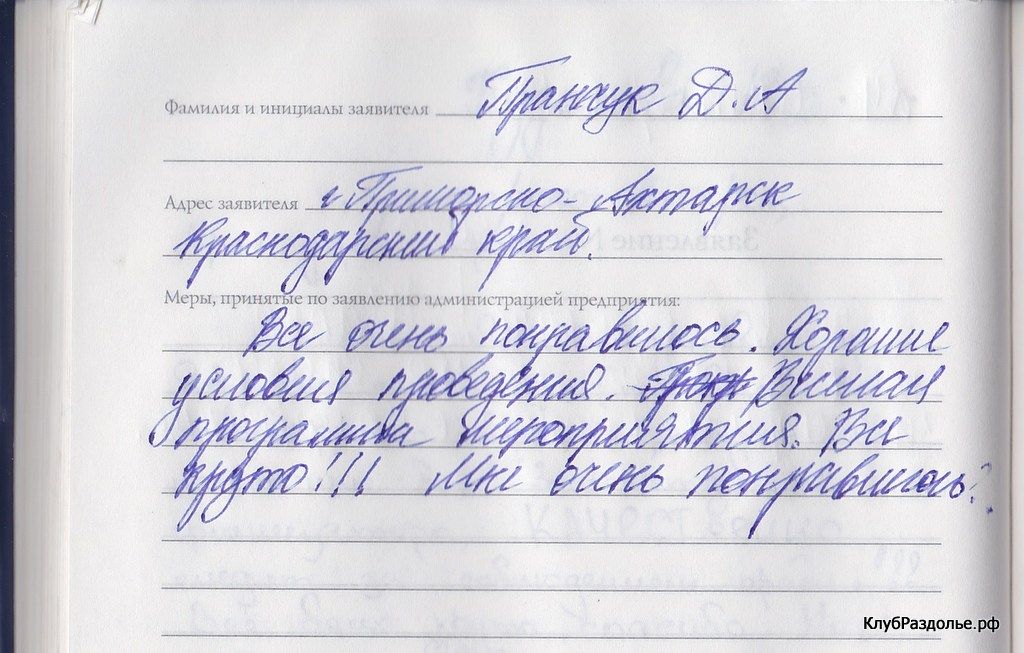 Фамилия и инициалы заявителя Пранчук Д.А
Адрес заявителя г Приморско-Ахтарск
Краснодарский край.
Меры, принятые по заявлению администрацией предприятия:
Все очень понравилось. Хорошие
условия проведения. Весёлая
программа мероприятия. Все
круто!!! Мне очень понравилось!
КлубРаздолье.рф